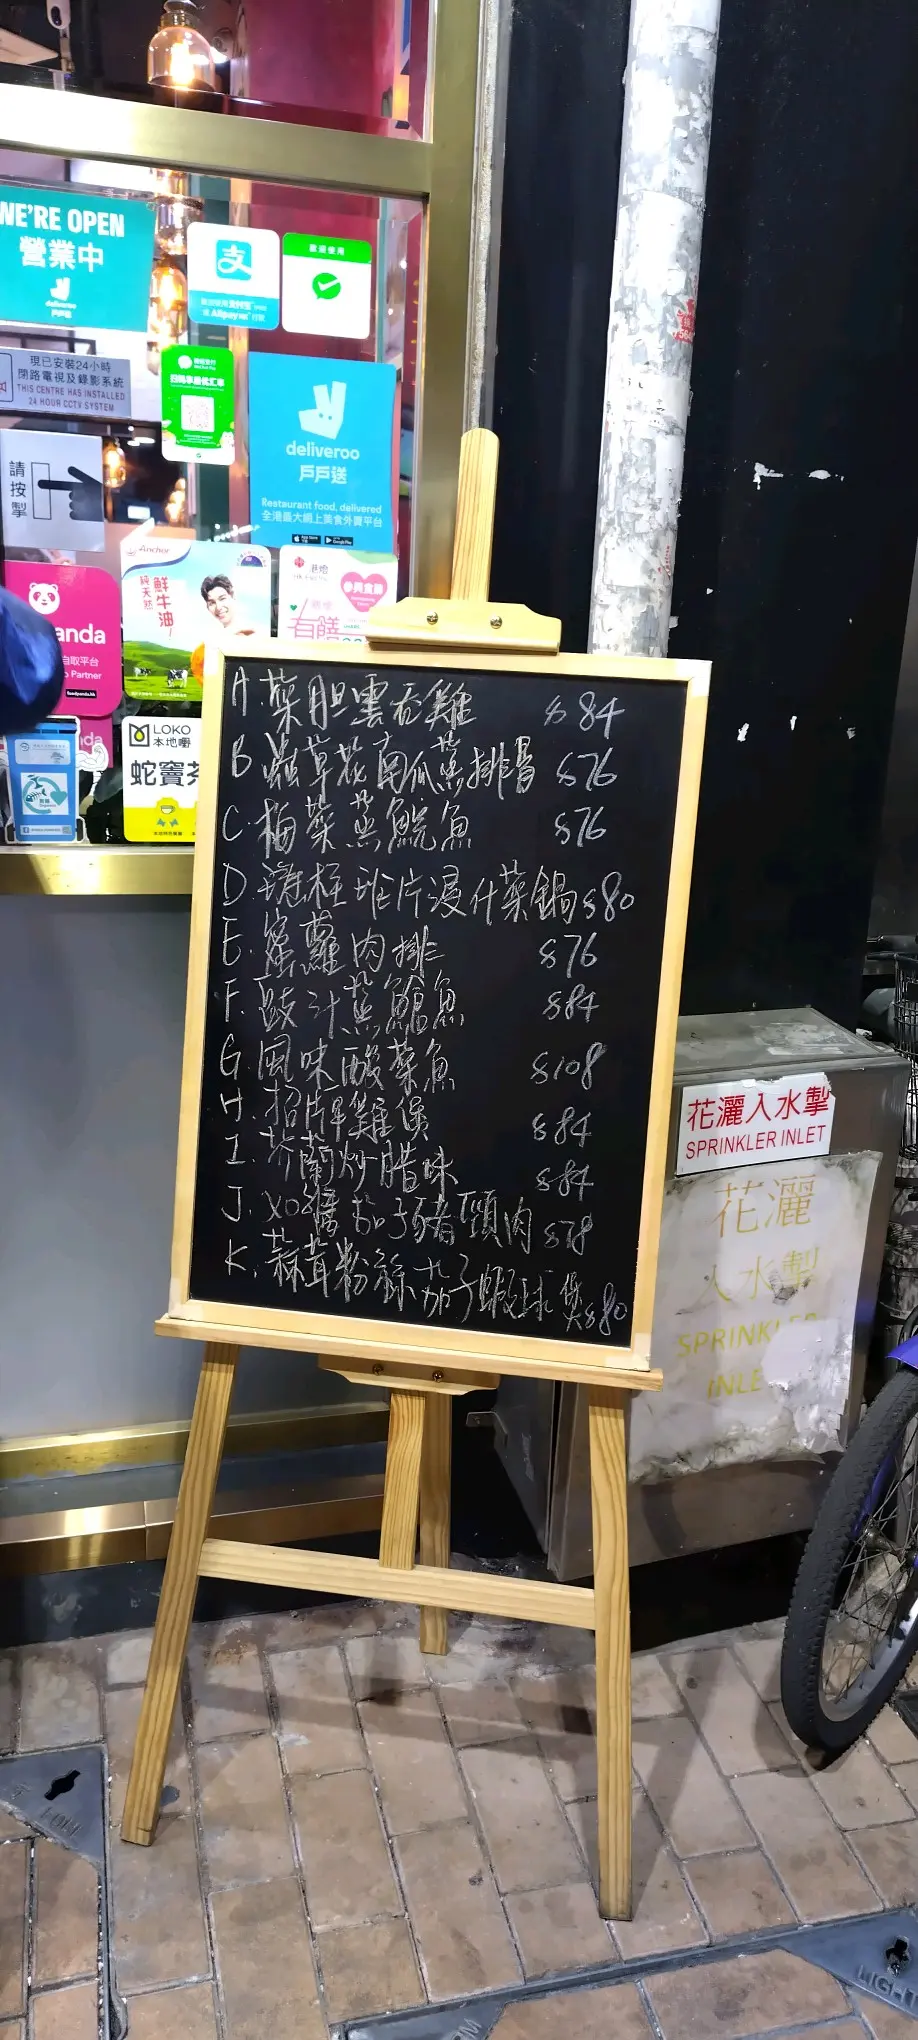 WE'RE OPEN
營業中
deliveroo
戶戶送
歡迎使用
現已安裝24小時
閉路電視及錄影系統
THIS CENTRE HAS INSTALLED
24 HOUR CCTV SYSTEM
deliveroo
戶戶送
Restaurant food, delivered
全港最大網上美食外賣平台
請按掣
Anchor
純天然
鮮牛油!
港燈
有饍
anda
自取平台
o Partner
foodpanda.hk
LOKO
本地嘢
蛇竇茶
A.菜胆雲吞雞 $84
B 蟲草花南瓜蒸排骨 $76
C.梅菜蒸鯇魚 $76
D. 班片浸什菜鍋 $80
E.蜜蘿肉排 $76
F.豉汁蒸鱠魚 $84
G.風味酸菜魚 $108
H.招牌雞煲 $84
I.芥蘭炒腊味 $84
J.XO醬茄子豬頸肉 $78
K.蒜茸粉絲茄子蝦球煲 $80
花灑入水掣
SPRINKLER INLET
花灑
入水掣
SPRINKLER
INLE
LIGHT